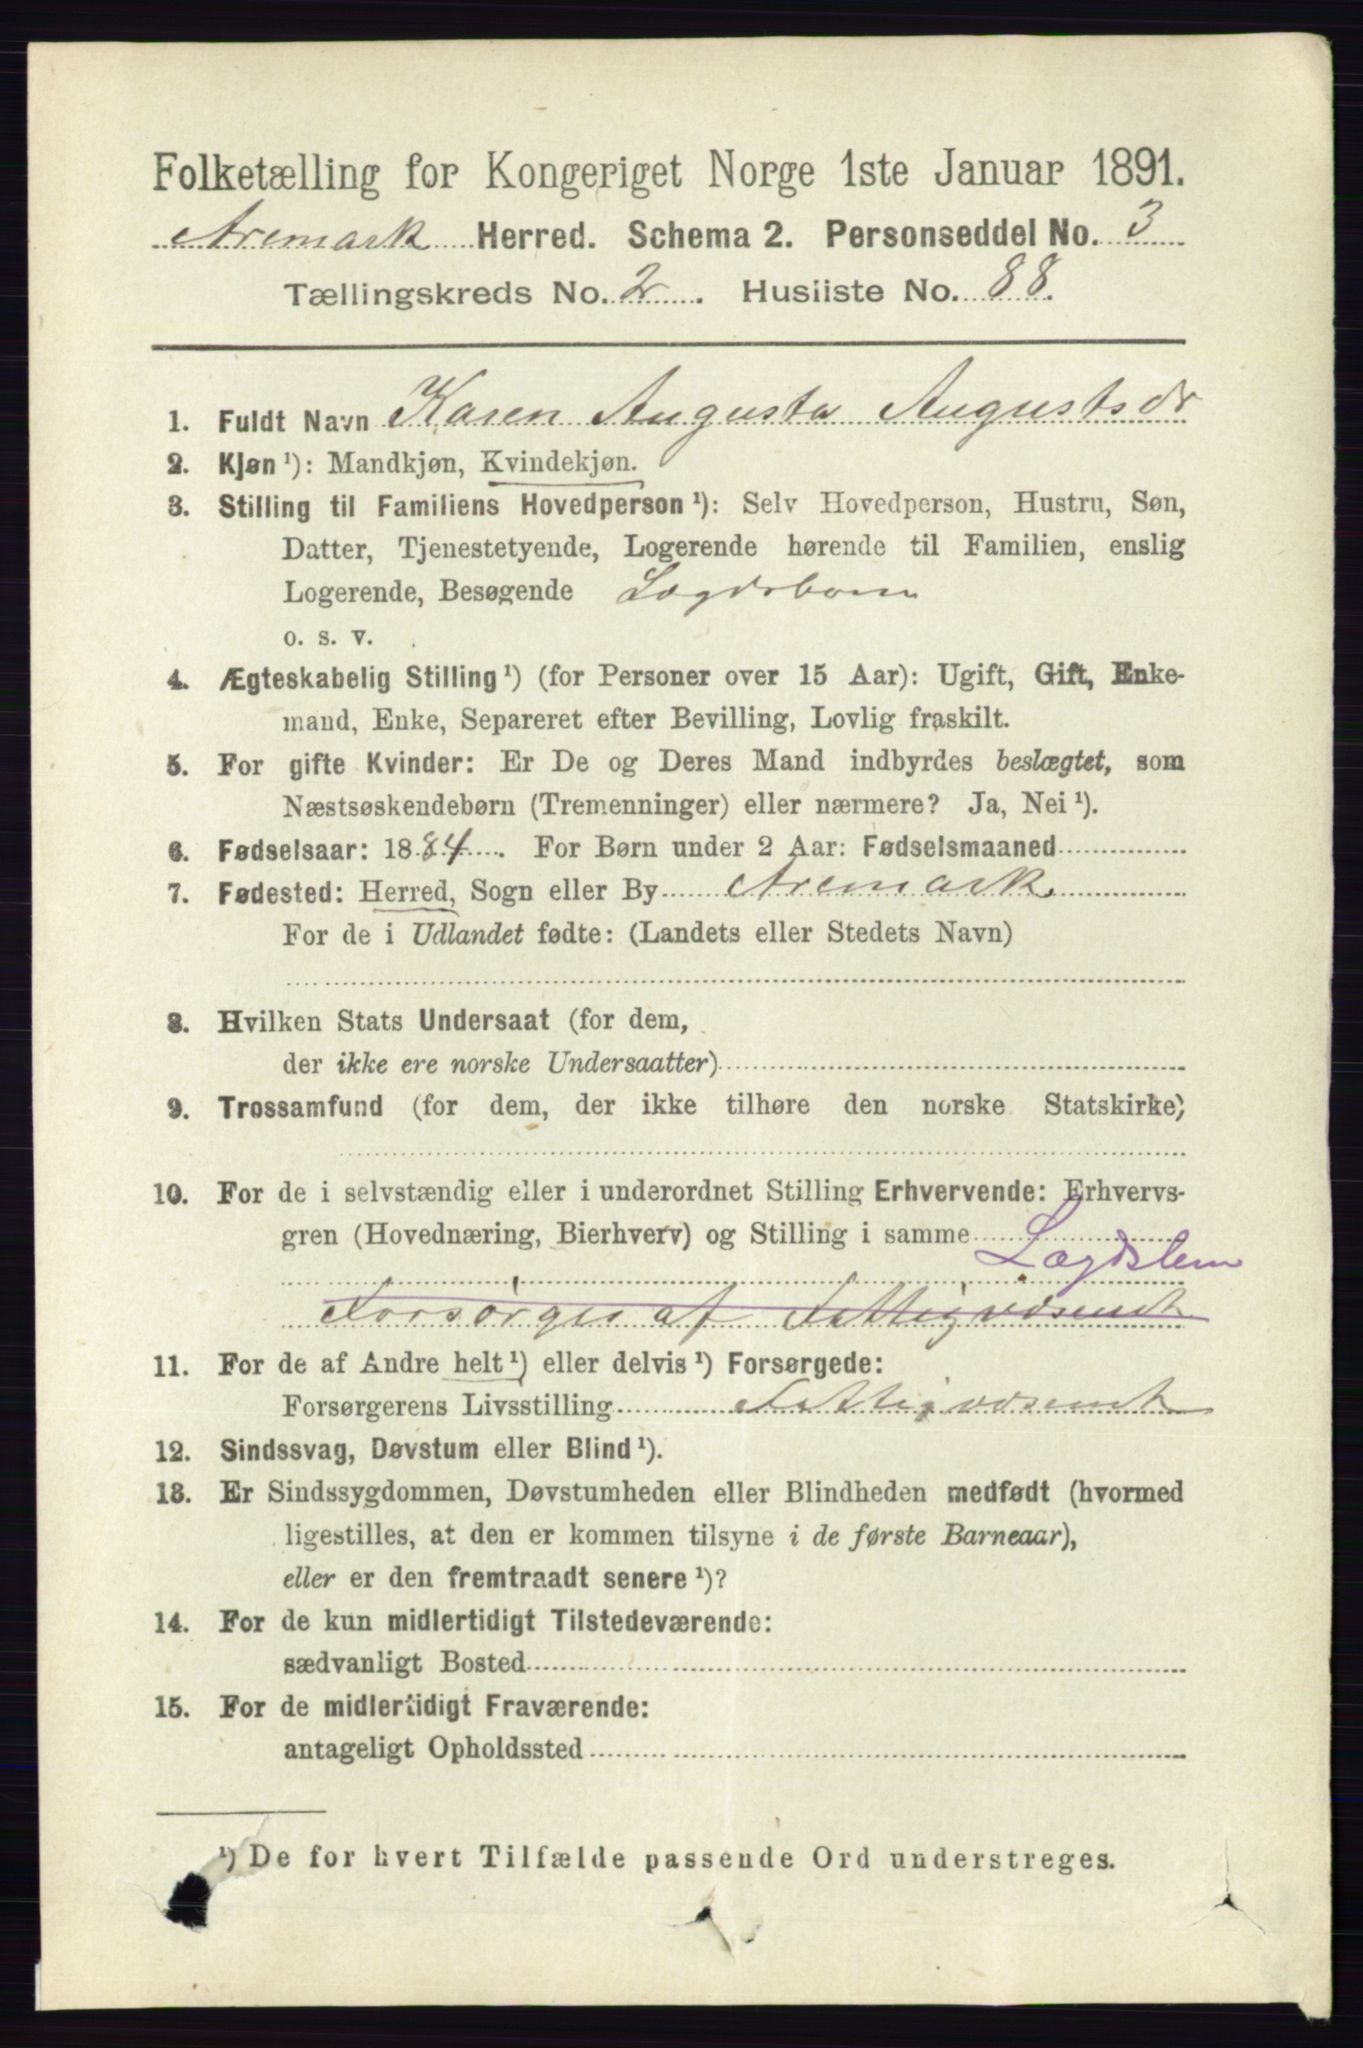 Folketælling for Kongeriget Norge 1ste Januar 1891.
Aremark Herred. Schema 2. Personseddel No. 3
Tællingskreds No. 2. Husliste No. 88.
1. Fuldt Navn Karen Augusta Augustsdr
2. Kjøn ¹): Mandkjøn, Kvindekjøn.
3. Stilling til Familiens Hovedperson ¹): Selv Hovedperson, Hustru, Søn,
Datter, Tjenestetyende, Logerende hørende til Familien, enslig
Logerende, Besøgende Lægdsbarn
o. s. v.
4. Ægteskabelig Stilling ¹) (for Personer over 15 Aar): Ugift, Gift, Enke-
mand, Enke, Separeret efter Bevilling, Lovlig fraskilt.
5. For gifte Kvinder: Er De og Deres Mand indbyrdes beslægtet, som
Næstsøskendebørn (Tremenninger) eller nærmere? Ja, Nei ¹).
6. Fødselsaar: 1884. For Børn under 2 Aar: Fødselsmaaned
7. Fødested: Herred, Sogn eller By Aremark.
For de i Udlandet fødte: (Landets eller Stedets Navn)
8. Hvilken Stats Undersaat (for dem,
der ikke ere norske Undersaatter)
9. Trossamfund (for dem, der ikke tilhøre den norske Statskirke)
10. For de i selvstændig eller i underordnet Stilling Erhvervende: Erhvervs-
gren (Hovednæring, Bierhverv) og Stilling i samme Lægdslem
Forsørges af Fattigvæsenet
11. For de af Andre helt ¹) eller delvis ¹) Forsørgede:
Forsørgerens Livsstilling Fattigvæsenet
12. Sindssvag, Døvstum eller Blind ¹).
13. Er Sindssygdommen, Døvstumheden eller Blindheden medfødt (hvormed
ligestilles, at den er kommen tilsyne i de første Barneaar),
eller er den fremtraadt senere ¹)?
14. For de kun midlertidigt Tilstedeværende:
sædvanligt Bosted
15. For de midlertidigt Fraværende:
antageligt Opholdssted
¹) De for hvert Tilfælde passende Ord understreges.